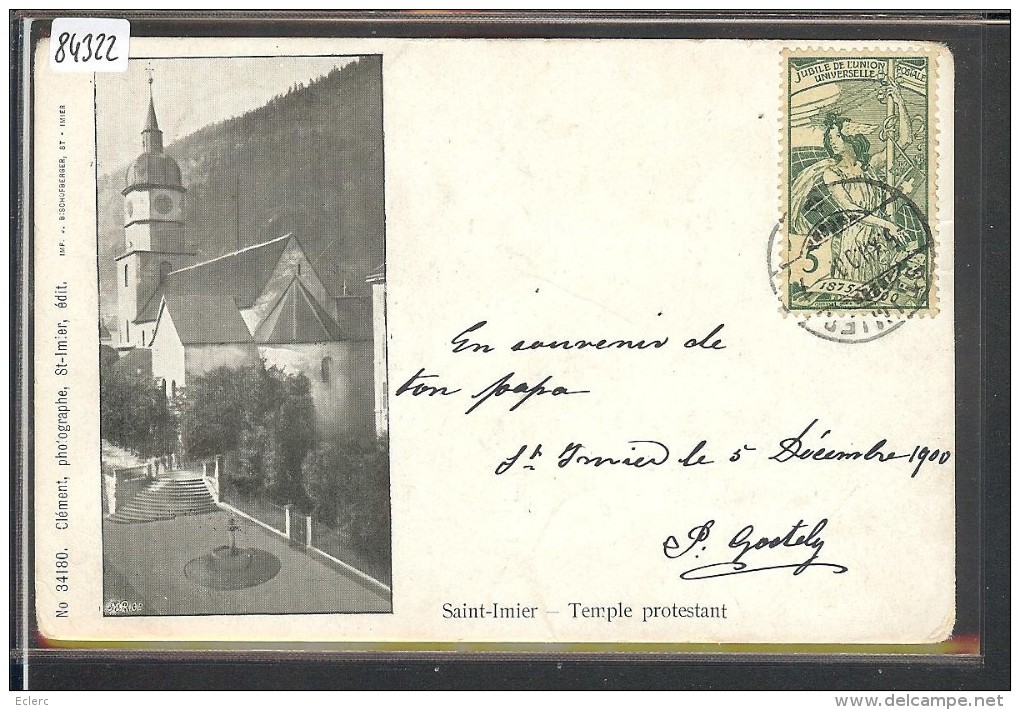 84322
JUBILÉ DE L'UNION POSTALE
UNIVERSELLE
5
1875
En souvenir de
ton papa
St Imier le 5 Décembre 1900
P. Gostely
Saint-Imier — Temple protestant
No 34180. Clément, photographe, St-Imier, édit. IMP. J. BISCHOFBERGER, ST-IMIER
Eclerc
www.delcampe.net